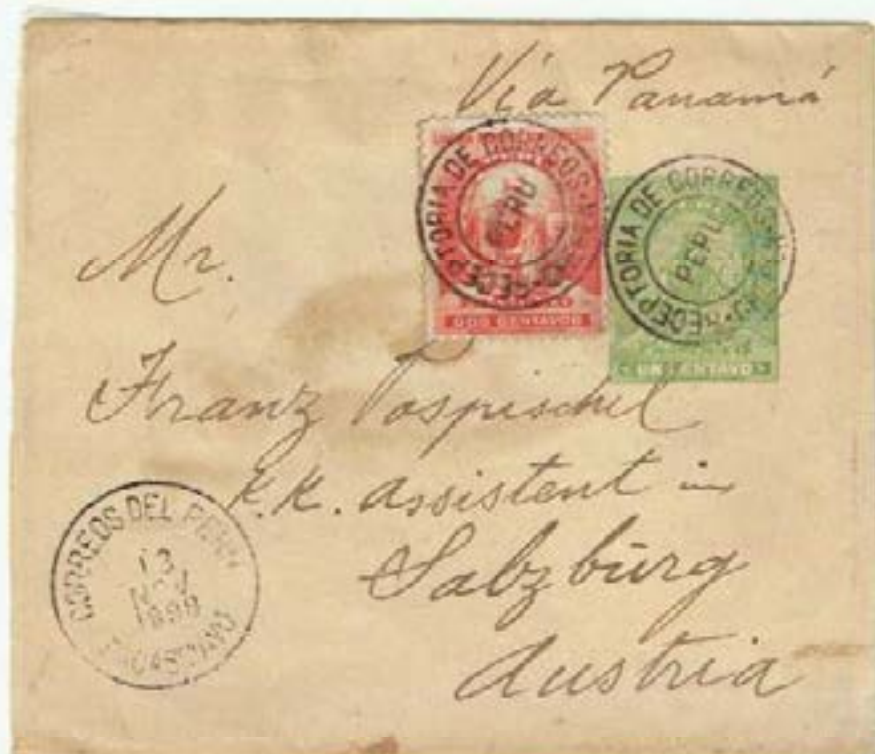 Via Panamá
RECEPTORIA DE CORREOS
PERU
DOS CENTAVOS
RECEPTORIA DE CORREOS
PERU
UN CENTAVO
Mr.
Franz Pospischel
k.k. assistent in
Salzburg
Austria
CORREOS DEL PERU
13
NOV
1899
PACASMAYO